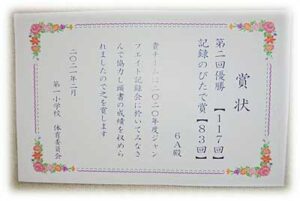 賞状
第二回優勝【117回】
記録のびたで賞【83回】
6A殿
貴チームは2020年度ジャン
フェイト記録会に於いてみなさ
んで協力し頭書の成績を収めら
れましたので之を賞します
二〇二一年二月
第一小学校 体育委員会